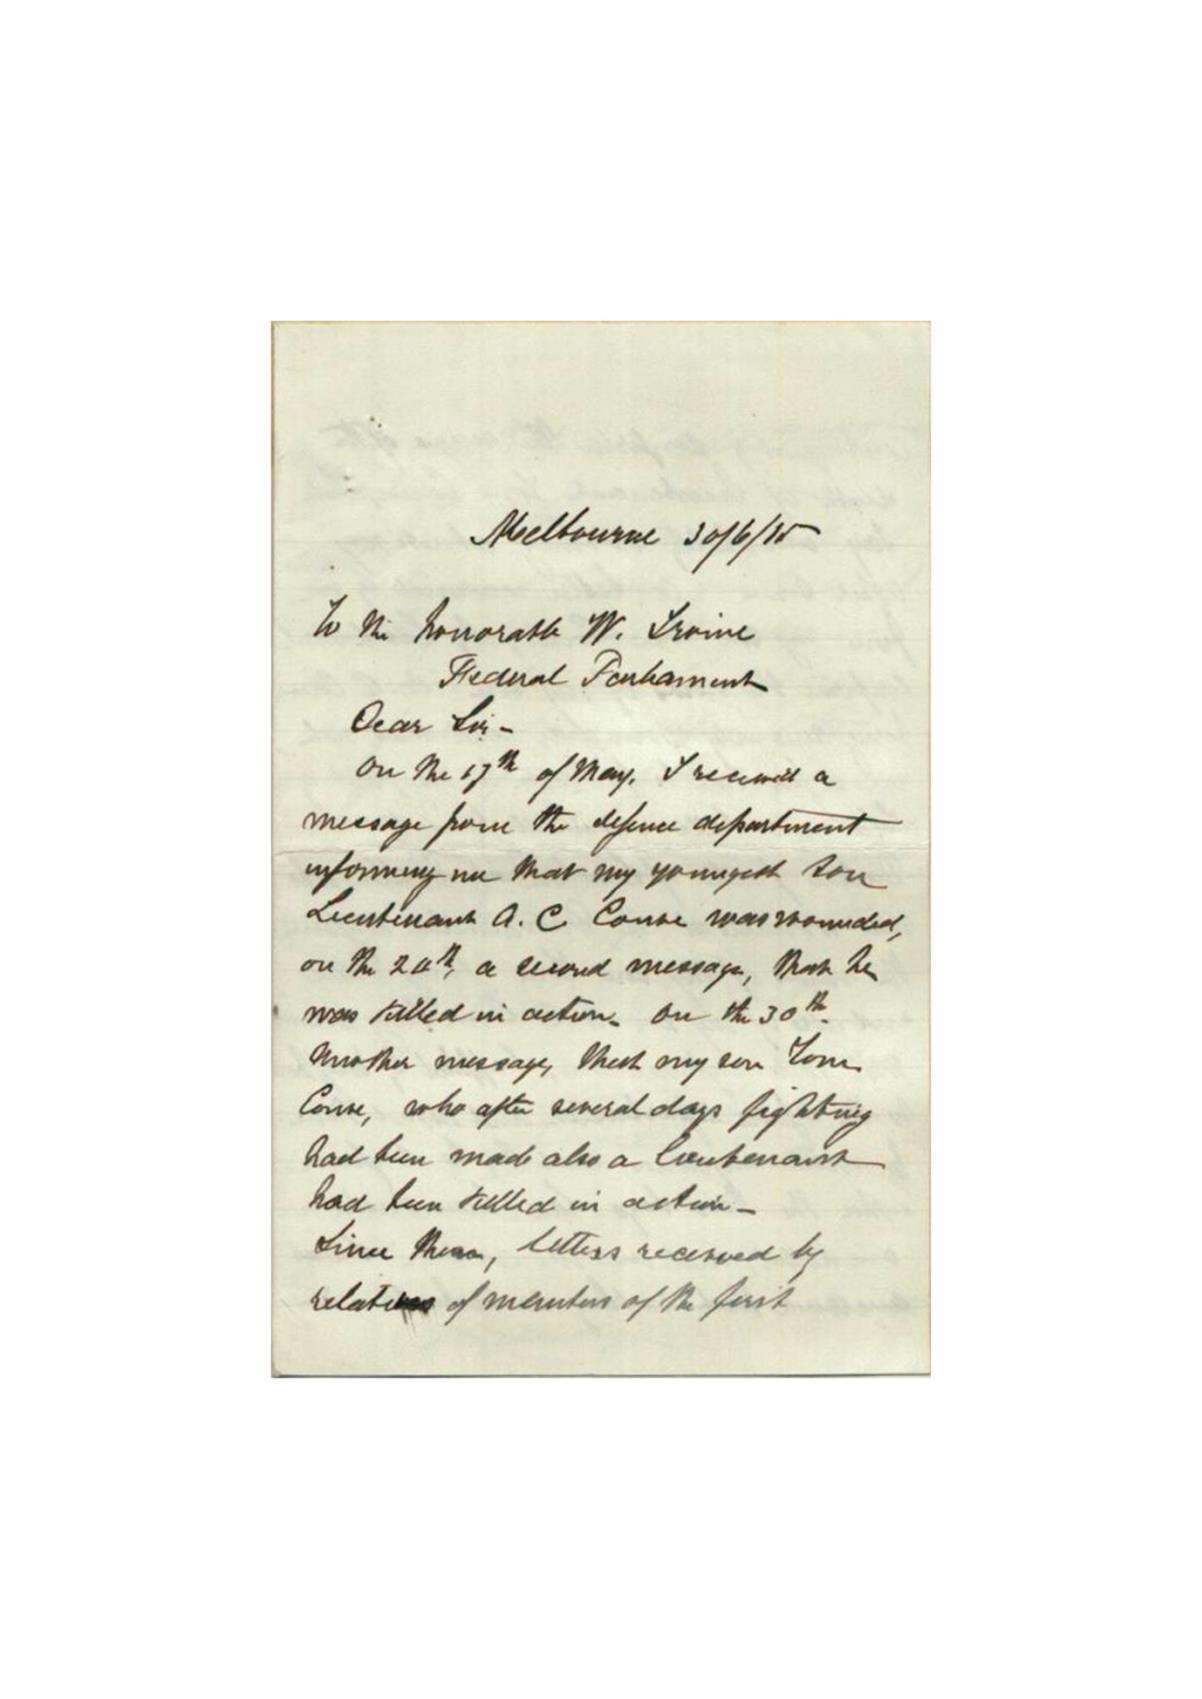 Melbourne 30/6/15
To the honorable W. Irvine
Federal Parliament
Dear Sir -
On the 17th of May, I received a
message from the defence department
informing me that my youngest son
Lieutenant A. C. was wounded,
on the a second message, that he
was killed in action. On the 30th
Another message, that my son Tom
who after several days fighting
had been made also a lieutenant
had been killed in action -
Since then, letters received by
of members of the first